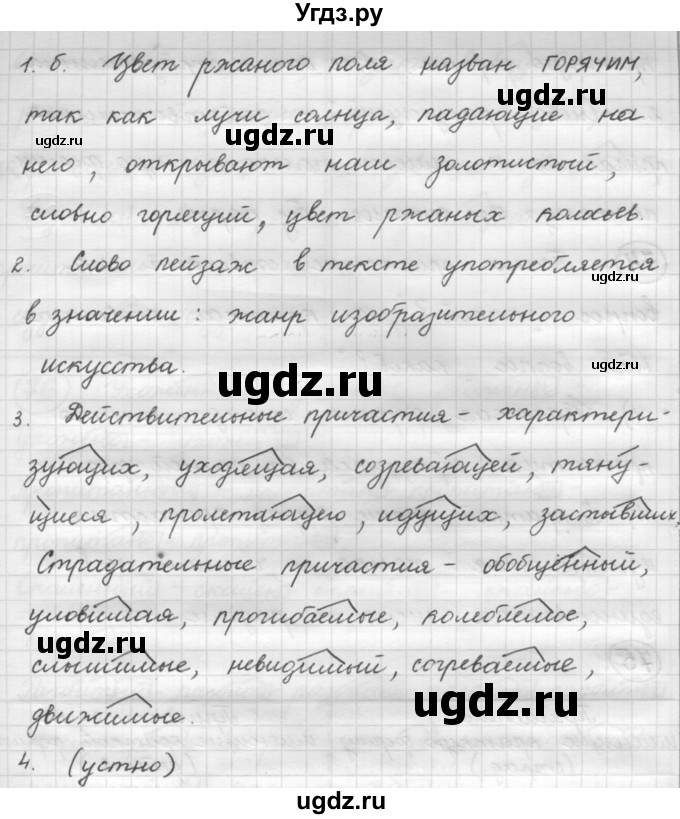 Угдз.ру
1. б. Цвет ржаного поля назван ГОРЯЧИМ,
так как лучи солнца, падающие на
него, открывают нам золотистый,
словно горящий, цвет ржаных колосьев.
2. Слово пейзаж в тексте употребляется
в значении: жанр изобразительного
искусства.
3. Действительные причастия - характери-
зующих, уходящая, созревающей, тяну-
щиеся, пролетающего, идущих, застывших,
Страдательные причастия - обобщённый,
уловимая, прогибаемые, колеблемое,
слышимые, невидимый, согреваемые,
движимые.
4. (устно)
ugdz.ru
ugdz.ru
ugdz.ru
ugdz.ru
ugdz.ru
ugdz.ru
ugdz.ru
ugdz.ru
ugdz.ru
ugdz.ru
ugdz.ru
ugdz.ru